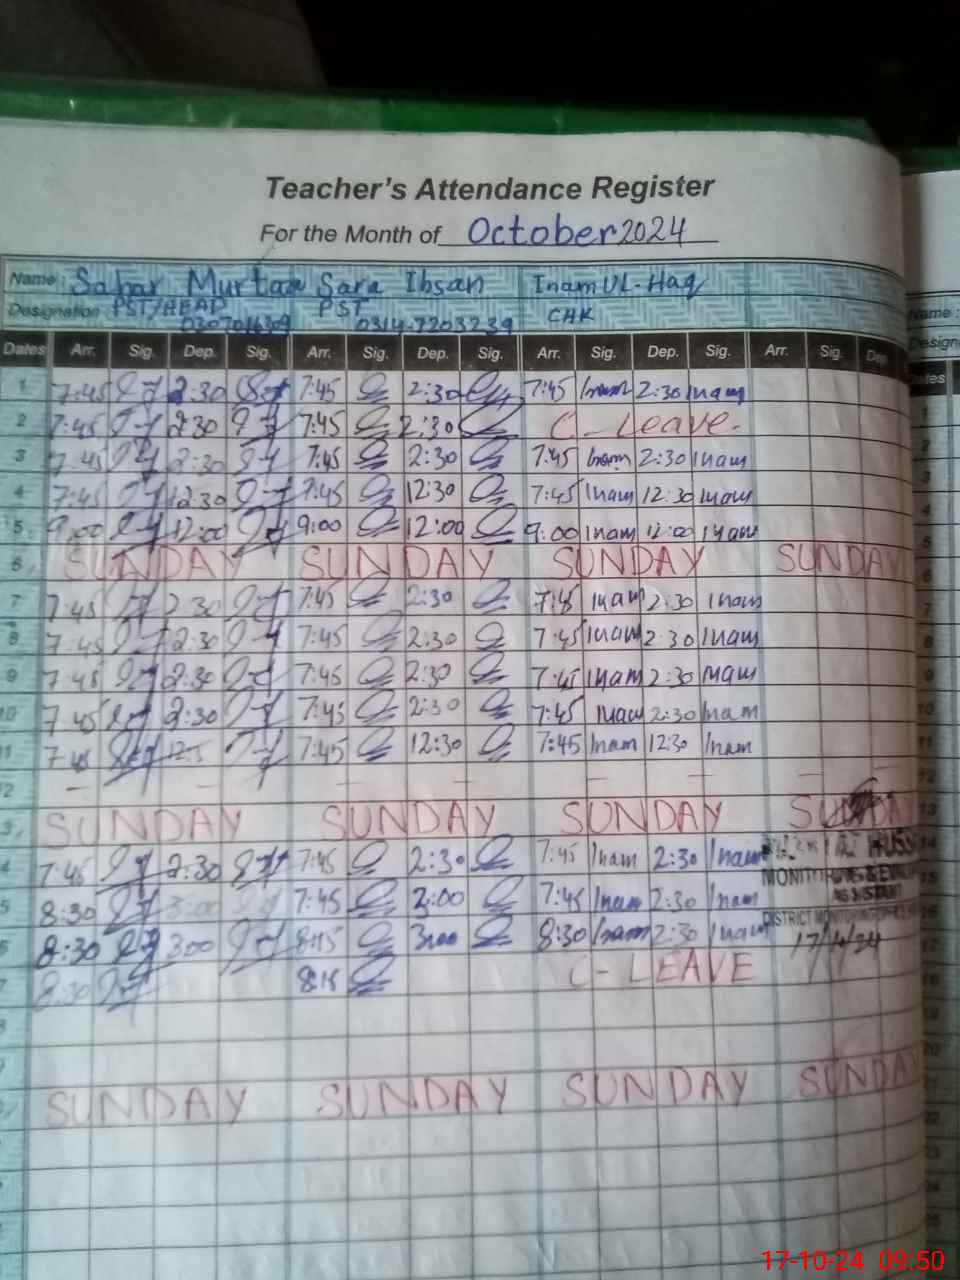 Teacher's Attendance Register
For the Month of October 2024
Name: Sahar Murtaza Sara Ihsan Inam UL-Haq
Designation PST/HEAD PST CHK
0314-7203239
Dates Arr. Sig. Dep. Sig. Arr. Sig. Dep. Sig. Arr. Sig. Dep. Sig. Arr. Sig. Dep
1 7:45 2:30 7:45 2:30 7:45 Inam 2:30 Inam
2 7:45 2:30 7:45 2:30 C-Leave.
3 7:45 2:30 7:45 2:30 7:45 Inam 2:30 Inam
4 7:45 12:30 7:45 12:30 7:45 Inam 12:30 Inam
5 9:00 12:00 9:00 12:00 9:00 Inam 12:00 Inam
6 SUNDAY SUNDAY SUNDAY SUNDAY
7 7:45 2:30 7:45 2:30 7:45 Inam 2:30 Inam
8 7:45 2:30 7:45 2:30 7:45 Inam 2:30 Inam
9 7:45 2:30 7:45 2:30 7:45 Inam 2:30 Inam
10 7:45 2:30 7:45 2:30 7:45 Inam 2:30 Inam
11 7:45 7:45 12:30 7:45 Inam 12:30 Inam
2 - - - - - - -
3 SUNDAY SUNDAY SUNDAY
4 7:45 2:30 7:45 2:30 7:45 Inam 2:30 Inam
5 8:30 3:00 7:45 3:00 7:45 Inam 2:30 Inam
6 8:30 3:00 8:15 3:00 8:30 Inam 2:30 Inam
7 8:30 8:15 C-LEAVE
SUNDAY SUNDAY SUNDAY SUNDAY
DISTRICT MONITORING
Name:
Design
17-10-24 09:50